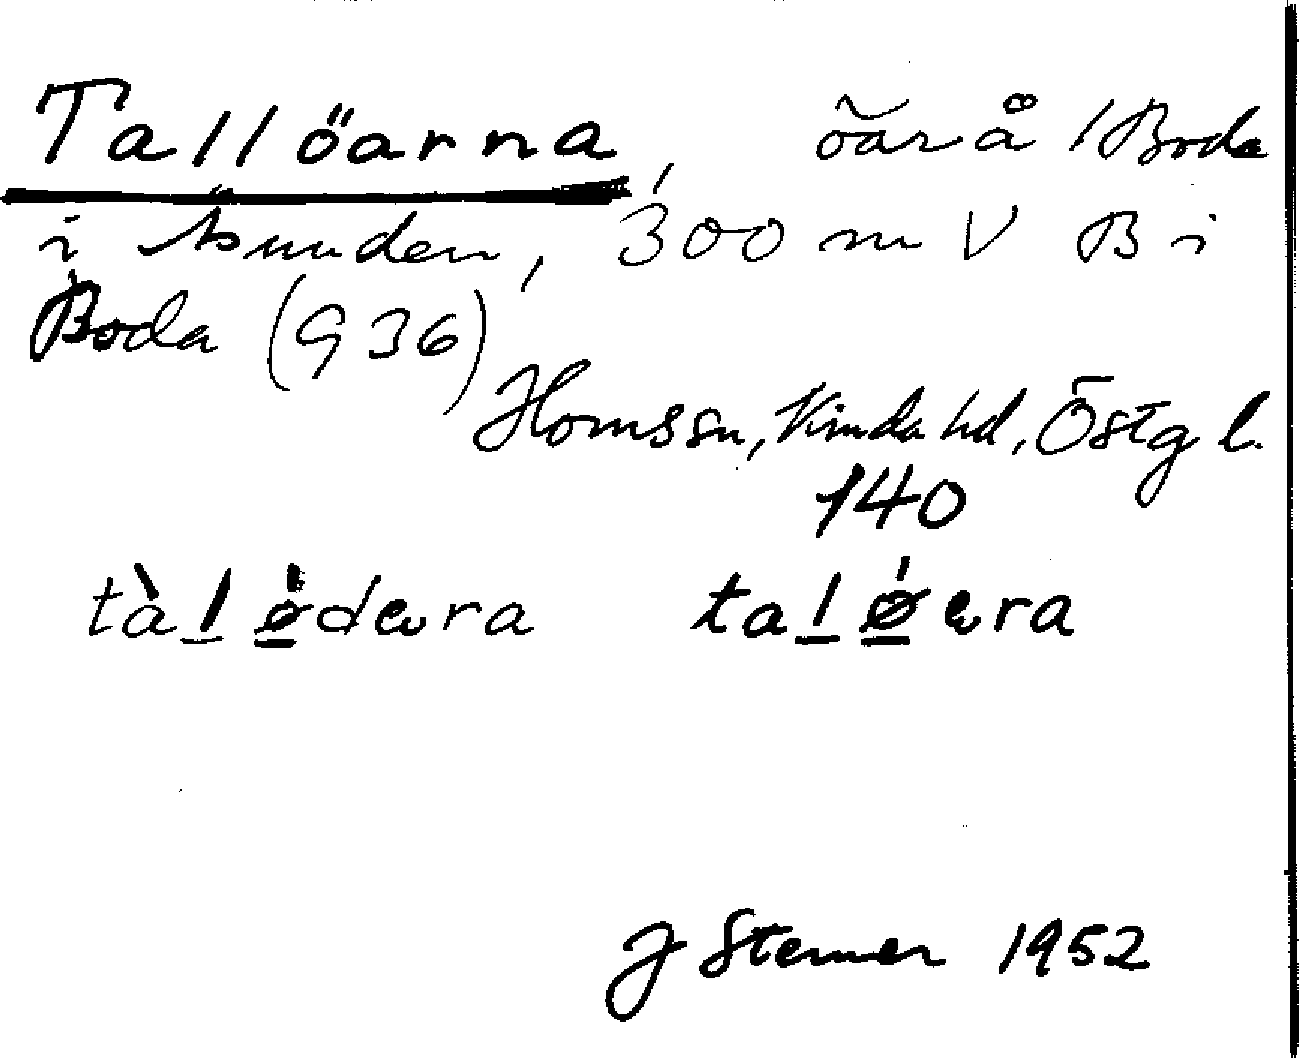 Tallöarna, öar å /Boda
i Åsunden, 300 m V B i
Boda (G 36)
Hornssn, Kinda hd, Östg l.
140
tàlø̀dæra talǿæra
J Sterner 1952